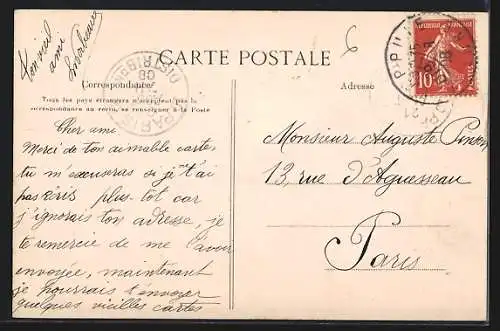 Ton vieil
ami
CARTE POSTALE
Correspondance
Adresse
Tous les pays étrangers n'acceptent pas la
correspondance au recto, se renseigner à la Poste
PARIS
DISTRIBUTION
08
10
Cher ami
Merci de ton aimable carte,
tu m'excuseras si je t'ai
pas écris plus-tot car
j'ignorais ton adresse, je
te remercie de me l'avoir
envoyée, maintenant
je pourrais t'envoyer
quelques vieilles cartes
Monsieur Auguste
13, rue d'Aguesseau
Paris
6